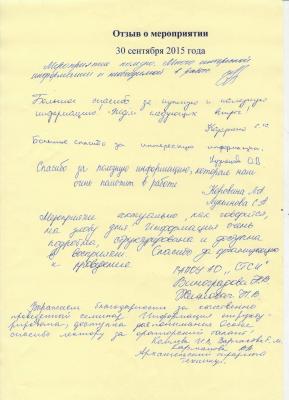 Отзыв о мероприятии
30 сентября 2015 года
Мероприятие полезно. Много интересной
информации и необходимой в работе
Большое спасибо за нужную и полезную
информацию. Ждем следующих встреч!
Большое спасибо за интересную информацию.
Спасибо за полезную информацию, которая нам
очень поможет в работе
Коровина
Мероприятие актуально, как говорится,
на злобу дня. Информация очень
подробна, структурирована и доступна
в восприятии. Спасибо за организацию
и проведение.
"СТСИ"
Виноградова Н.В.
Выражаем благодарность за качественно
проведенный семинар. Информация
доступна Особое
спасибо лектору за ораторский талант!
Архангельский аграрный
техникум.